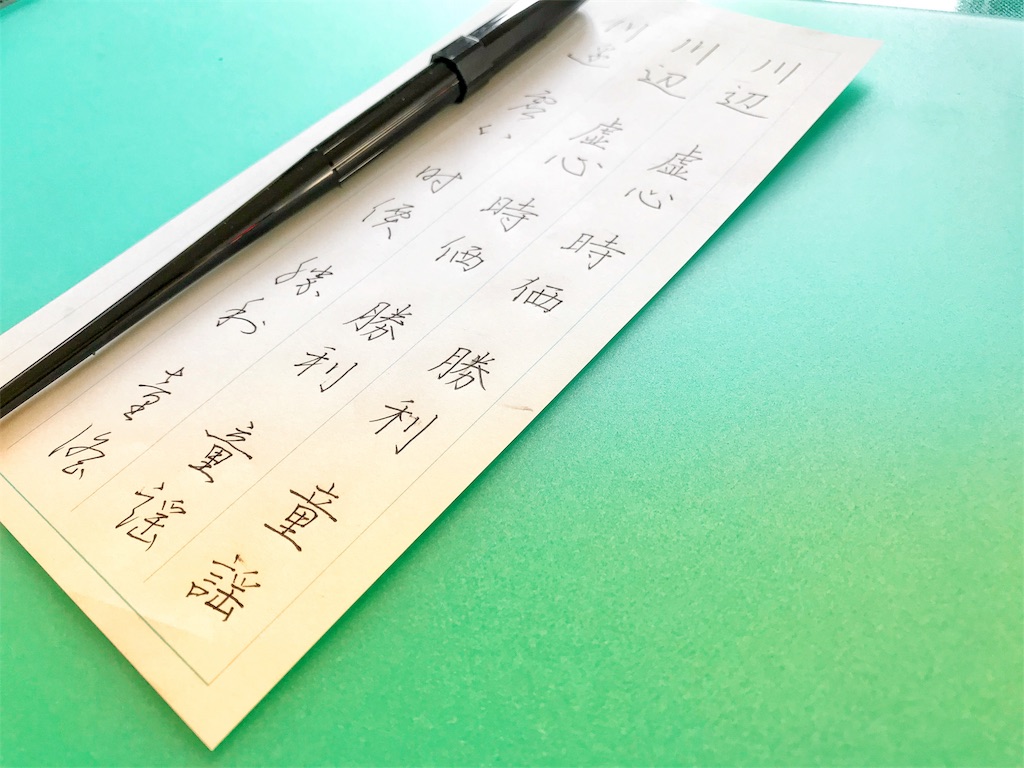 川辺 虚心 時価 勝利 童謡
川辺 虚心 時価 勝利 童謡
川邊 虚心 时價 勝利 童謡